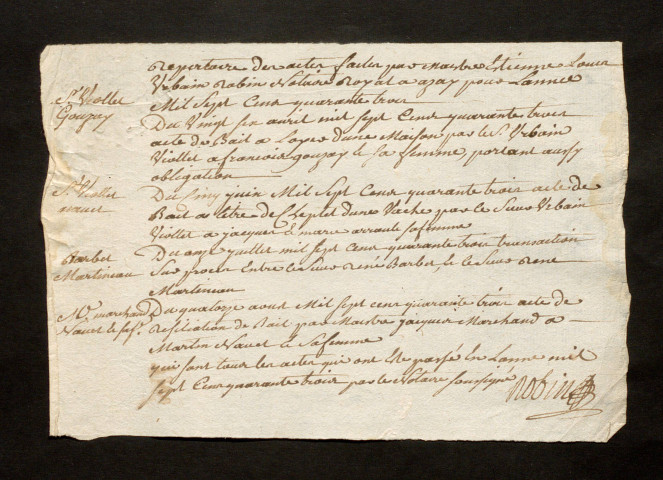 Repertoire des actes faites par Maistre Etienne Louis
Urbain Robin Notaire Royal a azay pour Lannee
Mil Sept Cens quarante trois
Sr Viollet
Gouzay
Du Vingt six avril mil sept Cens quarante trois
acte de Bail a Loyer dune Maison par le Sr Urbain
Viollet a francois gouzay & sa femme, portant aussy
obligation
Sr Viollet
Du Cinq juin Mil Sept Cens quarante trois acte de
Bail a titre de Cheptel dune Vache par le Sieur Urbain
Viollet a jacques & marie arrault sa femme
Barbet
Martineau
Du onze juillet mil sept Cens quarante trois transaction
Sur proces Entre le Sieur René Barbet, & le Sieur René
Martineau
Me marchand
Nauet & sa fe.
Du quatorze aoust Mil Sept Cens quarante trois acte de
Resiliation de Bail par Maistre jacques Marchand a
Martin Nauet & Sa femme
qui sont tous les actes qui ont Eté passé En Lanne mil
sept Cens quarante trois par le Notaire soussigné
Robin